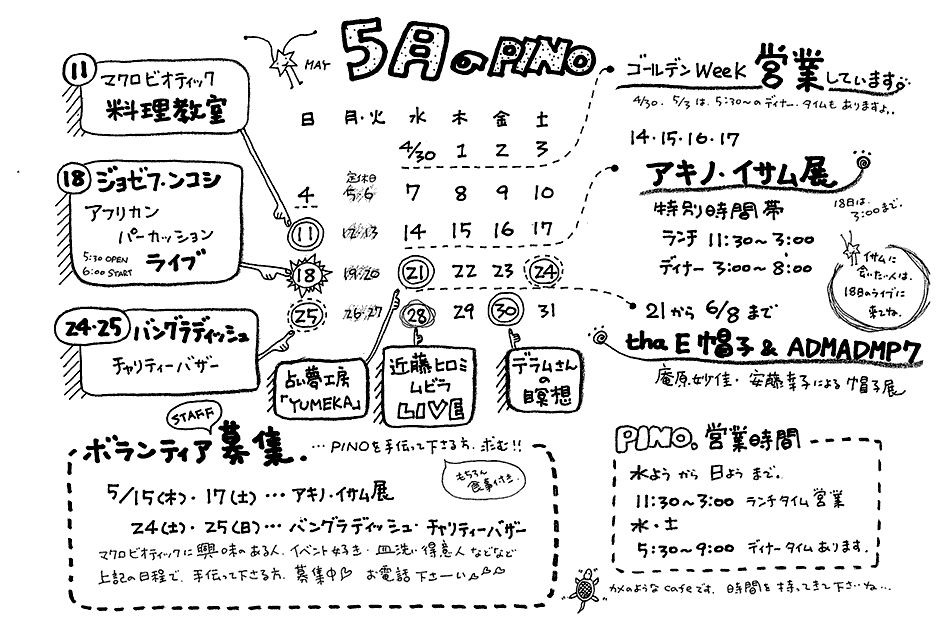 MAY 5月のPINO
11
マクロビオティック
料理教室
18
ジョセフ・ンコシ
アフリカン
パーカッション
5:30 OPEN
6:00 START
ライブ
24・25
バングラディッシュ
チャリティーバザー
日 月・火 水 木 金 土
4/30 1 2 3
定休日
4 5・6 7 8 9 10
11 12・13 14 15 16 17
18 19・20 21 22 23 24
25 26・27 28 29 30 31
占い夢工房
「YUMEKA」
近藤ヒロミ
ムビラ
LIVE
デラムさん
の
瞑想
ゴールデンWeeK 営業しています
4/30. 5/3 は、5:30〜のディナータイムもありますよ..
14・15・16・17
アキノ・イサム展
特別時間帯
18日は、
3:00まで.
ランチ 11:30〜3:00
ディナー 3:00〜8:00
イサムに
会いたい人は、
18日のライブに
来てね.
21から 6/8 まで
tha E 帽子 & ADMADMP7
庵原妙佳・安藤幸子による帽子展
STAFF
ボランティア募集.
…PINOを手伝って下さる方、求む!!
もちろん
食事付き.
5/15(木)・17(土)…アキノ・イサム展
24(土)・25(日)…バングラディッシュ・チャリティーバザー
マクロビオティックに興味のある人、イベント好き・皿洗い得意人などなど
上記の日程で、手伝って下さる方、募集中 お電話下さーい
PINO. 営業時間
水よう から 日よう まで.
11:30〜3:00 ランチタイム営業
水・土
5:30〜9:00 ディナータイムあります.
カメのような cafeです. 時間を持ってきて下さいね…